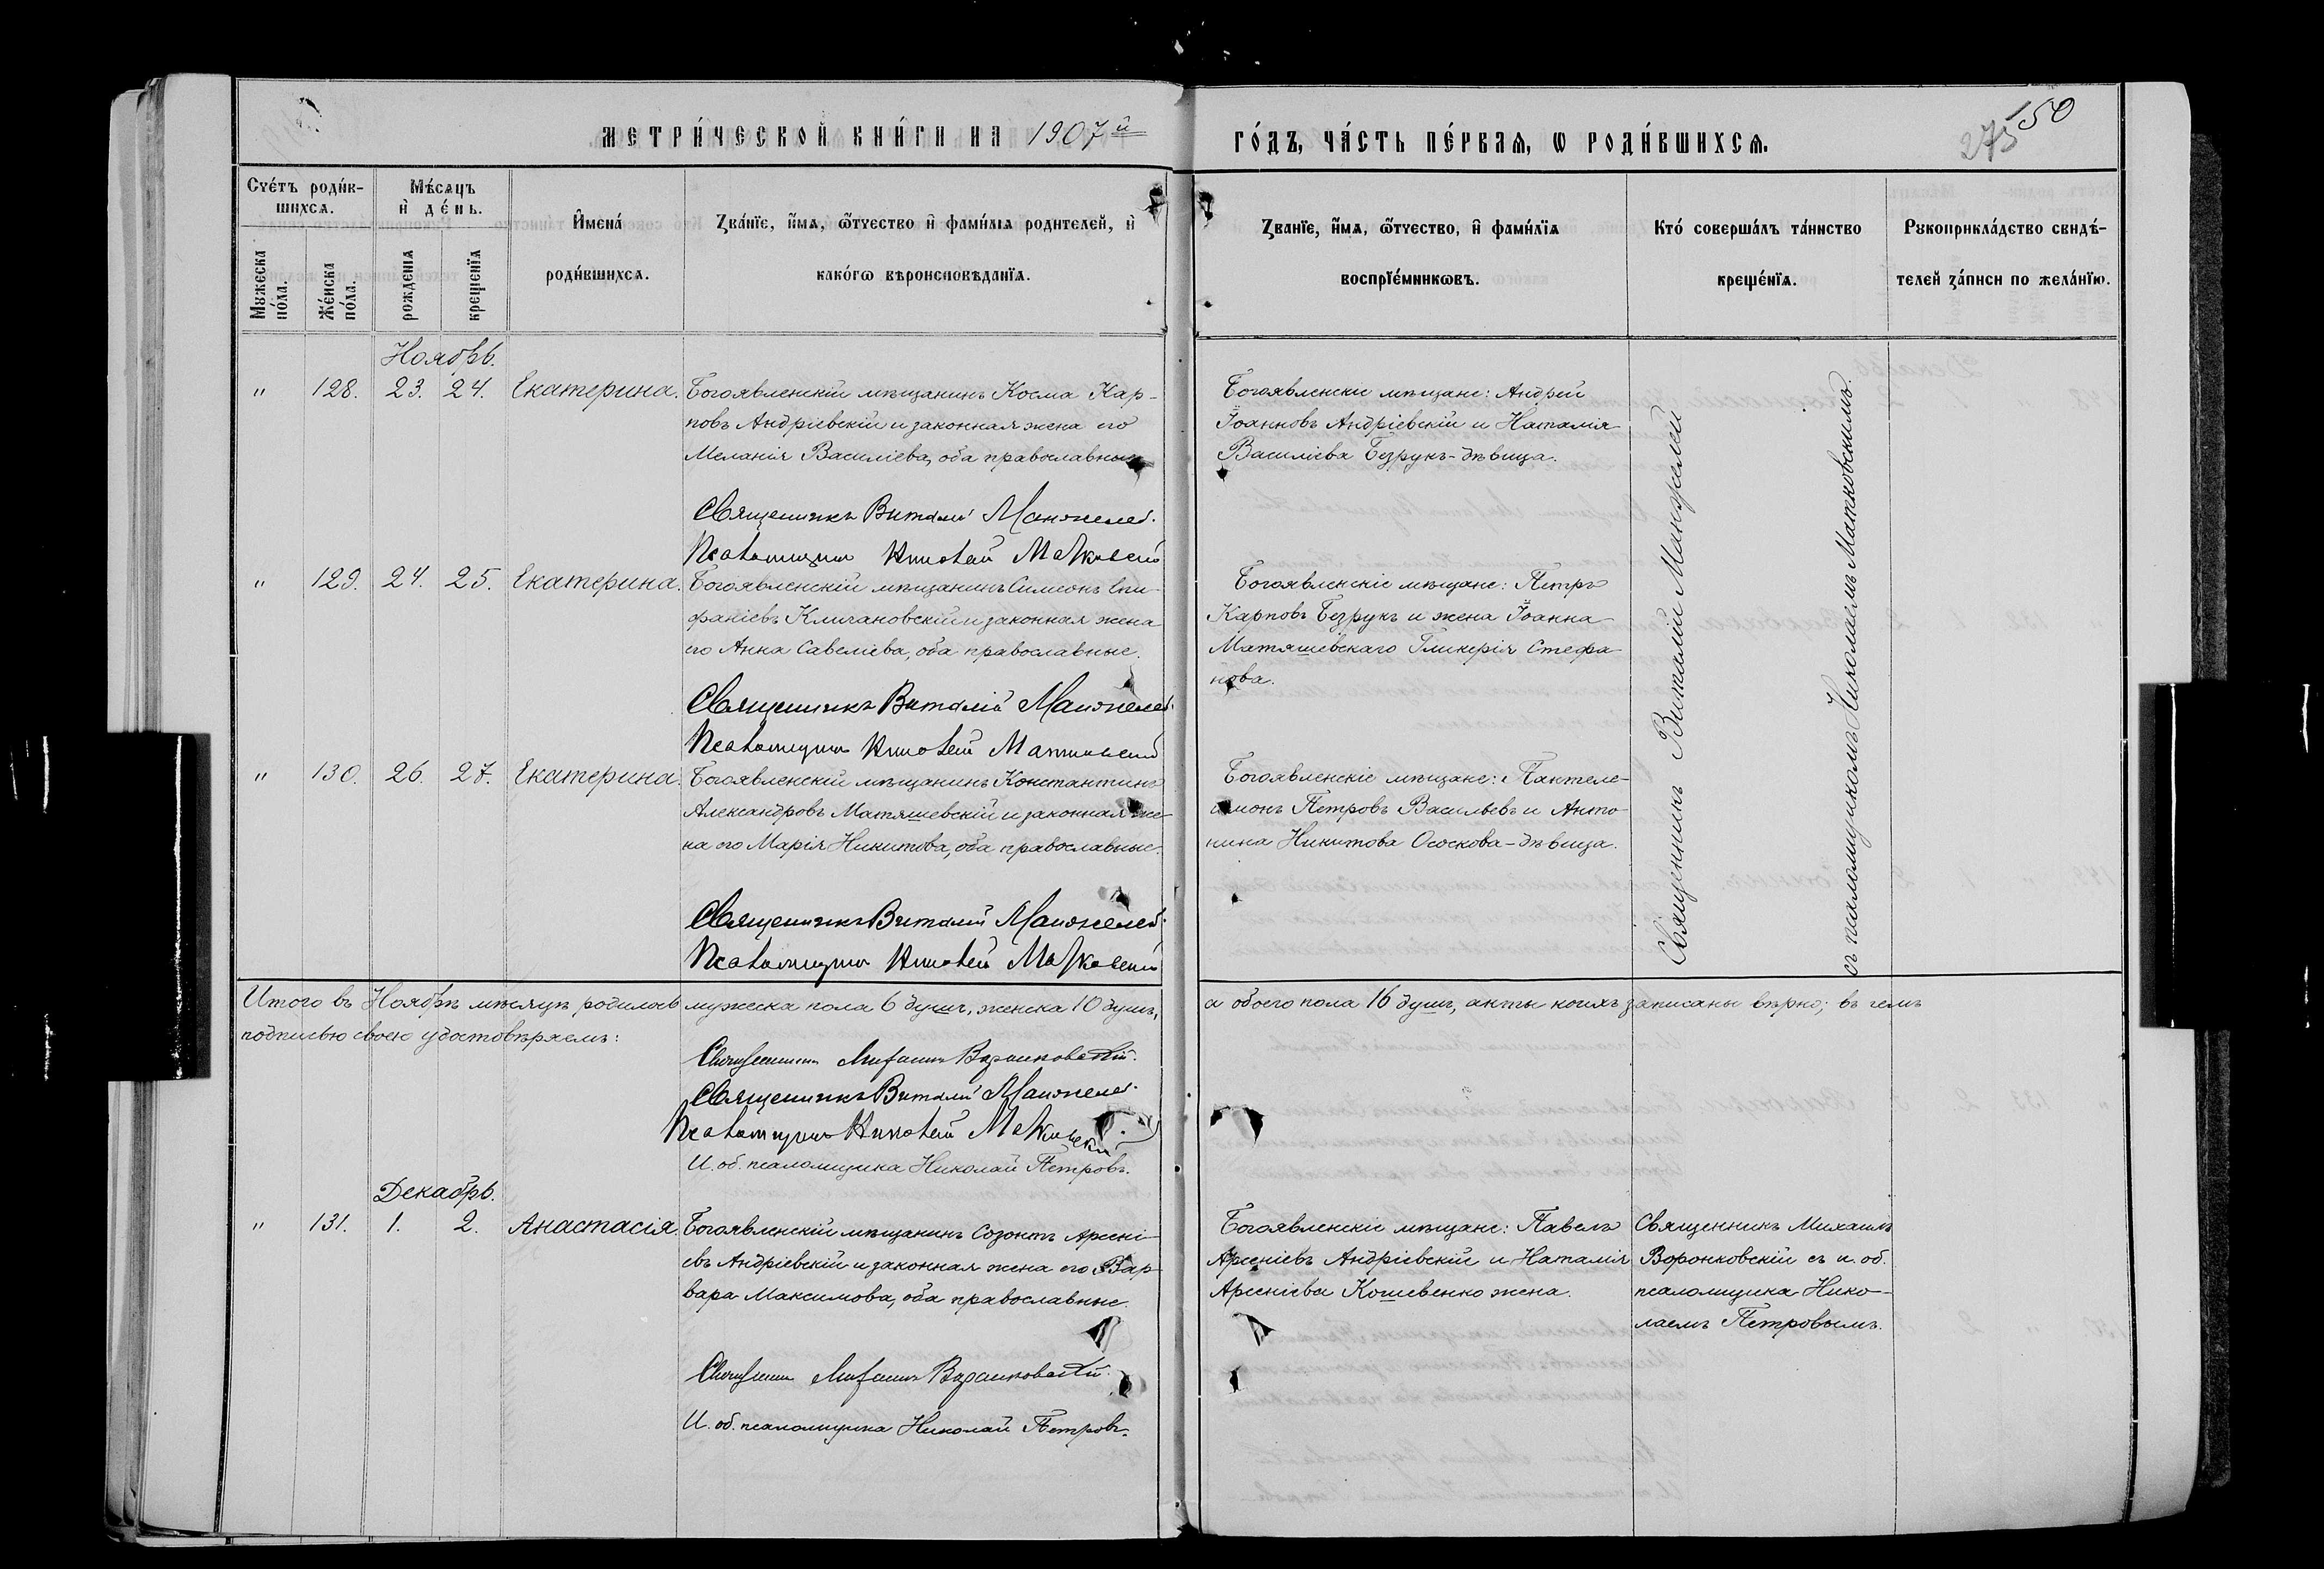 Метри́ческой кни́ги на 1907й
го́дъ, ча́сть пе́рваѧ, ѡ роди́вшихсѧ.
150
275
Сче́тъ роди́в-
шихсѧ.
Мужеска
по́ла.
Же́нска
по́ла.
Мѣ́сѧцъ
и҆ де́нь.
рожденїѧ
крещенїѧ
И҆мена́
роди́вшихсѧ.
Ζва́нїе, и҆́мѧ, ѻ҆́тчество и҆ фами́лїѧ родителей, и҆
како́гѡ вѣроисповѣданїѧ.
Ζванїе, и҆́мѧ, ѻ҆́тчество, и҆ фами́лїѧ
воспрїе́мникѡвъ.
Кто́ соверша́лъ та́инство
креще́нїѧ.
Рукоприкла́дство свидѣ́-
телей ζа́писи по жела́нїю.
Ноябрь.
" 128. 23. 24. Екатерина.
Богоявленскій мѣщанинъ Косма Кар-
повъ Андріевскій и законная жена его
Меланія Василіева, оба православные
Священникъ Виталій Манжелей.
Псаломщикъ Николай Матковскій
Богоявленскіе мѣщане: Андрей
Іоанновъ Андріевскій и Наталія
Василіева Безрукъ-дѣвица.
Священникъ Виталій Манжелей
съ псаломщикомъ Николаемъ Матковскимъ.
" 129. 24. 25. Екатерина.
Богоявленскій мѣщанинъ Симеонъ Епи-
фаніевъ Кличановскій и законная жена
его Анна Савеліева, оба православные.
Священникъ Виталій Манжелей.
Псаломщикъ Николай Матковскій
Богоявленскіе мѣщане: Петръ
Карповъ Безрукъ и жена Іоанна
Матяшевскаго Гликерія Стефа-
нова.
" 130. 26. 27. Екатерина.
Богоявленскій мѣщанинъ Константинъ
Александровъ Матяшевскій и законная же-
на его Марія Никитова, оба православные.
Священникъ Виталій Манжелей.
Псаломщикъ Николай Матковскій
Богоявленскіе мѣщане: Пантеле-
имонъ Петровъ Васильевъ и Анто-
нина Никитова Ососкова-дѣвица.
Итого въ Ноябрѣ мѣсяцѣ родилось мужеска пола 6 душъ, женска 10 душъ,
а обоего пола 16 душъ, акты коихъ записаны вѣрно; въ чемъ
подписью своею удостовѣряемъ:
Священникъ Михаилъ Воронковскій.
Священникъ Виталій Манжелей.
Псаломщикъ Николай Матковскій
И. об. псаломщика Николай Петровъ.
Декабрь.
" 131. 1. 2. Анастасія.
Богоявленскій мѣщанинъ Созонтъ Арсені-
евъ Андріевскій и законная жена его Вар-
вара Максимова, оба православные.
Священникъ Михаилъ Воронковскій.
И. об. псаломщика Николай Петровъ.
Богоявленскіе мѣщане: Павелъ
Арсеніевъ Андріевскій и Наталія
Арсеніева Кошевенко жена.
Священникъ Михаилъ
Воронковскій съ и. об.
псаломщика Нико-
лаемъ Петровымъ.